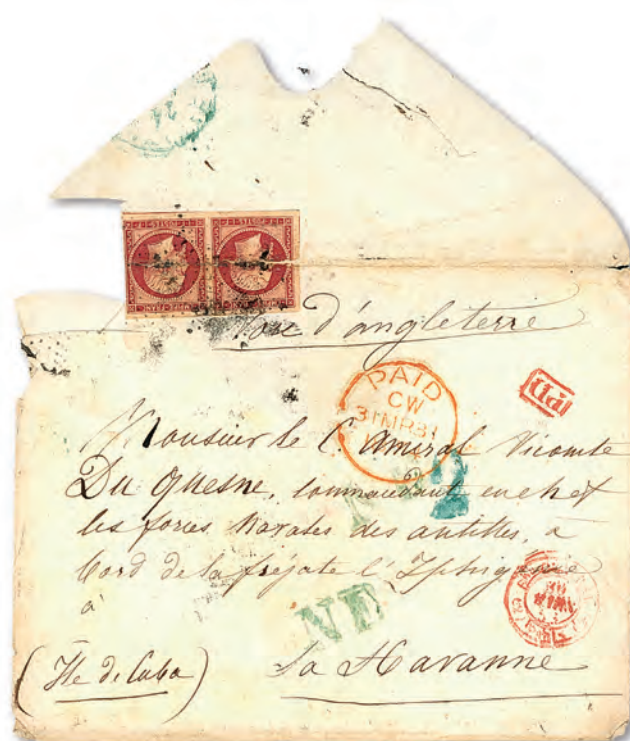 Voie d'angleterre
PAID
CW
31MR31
PD
Monsieur le C. Amiral Vicomte
Du Quesne, Commandant en chef
les forces Navales des antilles, à
bord de la frégate l'Iphigénie
à
2
NE
(Île de Cuba)
La Havanne